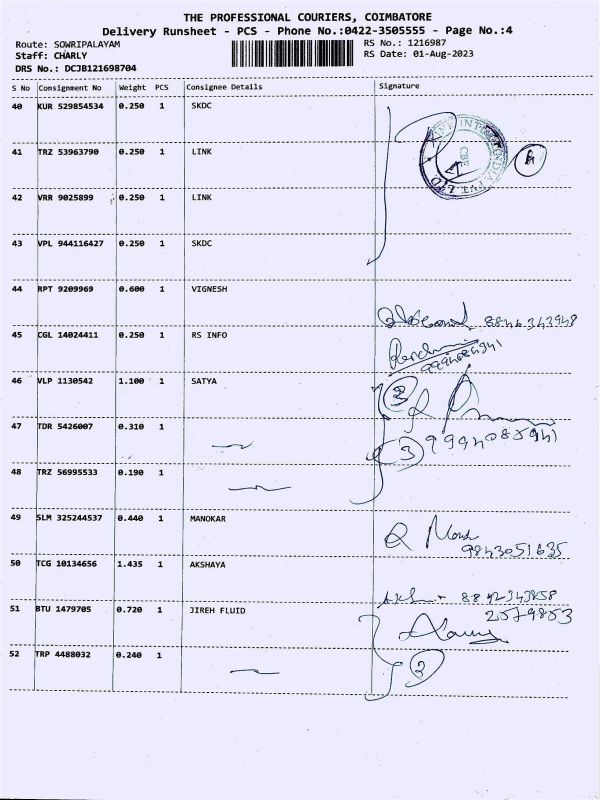 THE PROFESSIONAL COURIERS, COIMBATORE
Delivery Runsheet - PCS - Phone No.:0422-3505555 - Page No.:4
Route: SOWRIPALAYAM RS No.: 1216987
Staff: CHARLY RS Date: 01-Aug-2023
DRS No.: DCJB121698704
S No Consignment No Weight PCS Consignee Details Signature
40 KUR 529854534 0.250 1 SKDC
41 TRZ 53963790 0.250 1 LINK
42 VRR 9025899 0.250 1 LINK
43 VPL 944116427 0.250 1 SKDC
44 RPT 9209969 0.600 1 VIGNESH
45 CGL 14024411 0.250 1 RS INFO
46 VLP 1130542 1.100 1 SATYA
2
47 TDR 5426007 0.310 1
3 9994085941
48 TRZ 56995533 0.190 1
49 SLM 325244537 0.440 1 MANOKAR
9843051635
50 TCG 10134656 1.435 1 AKSHAYA
51 BTU 1479705 0.720 1 JIREH FLUID
2579853
52 TRP 4488032 0.240 1
2